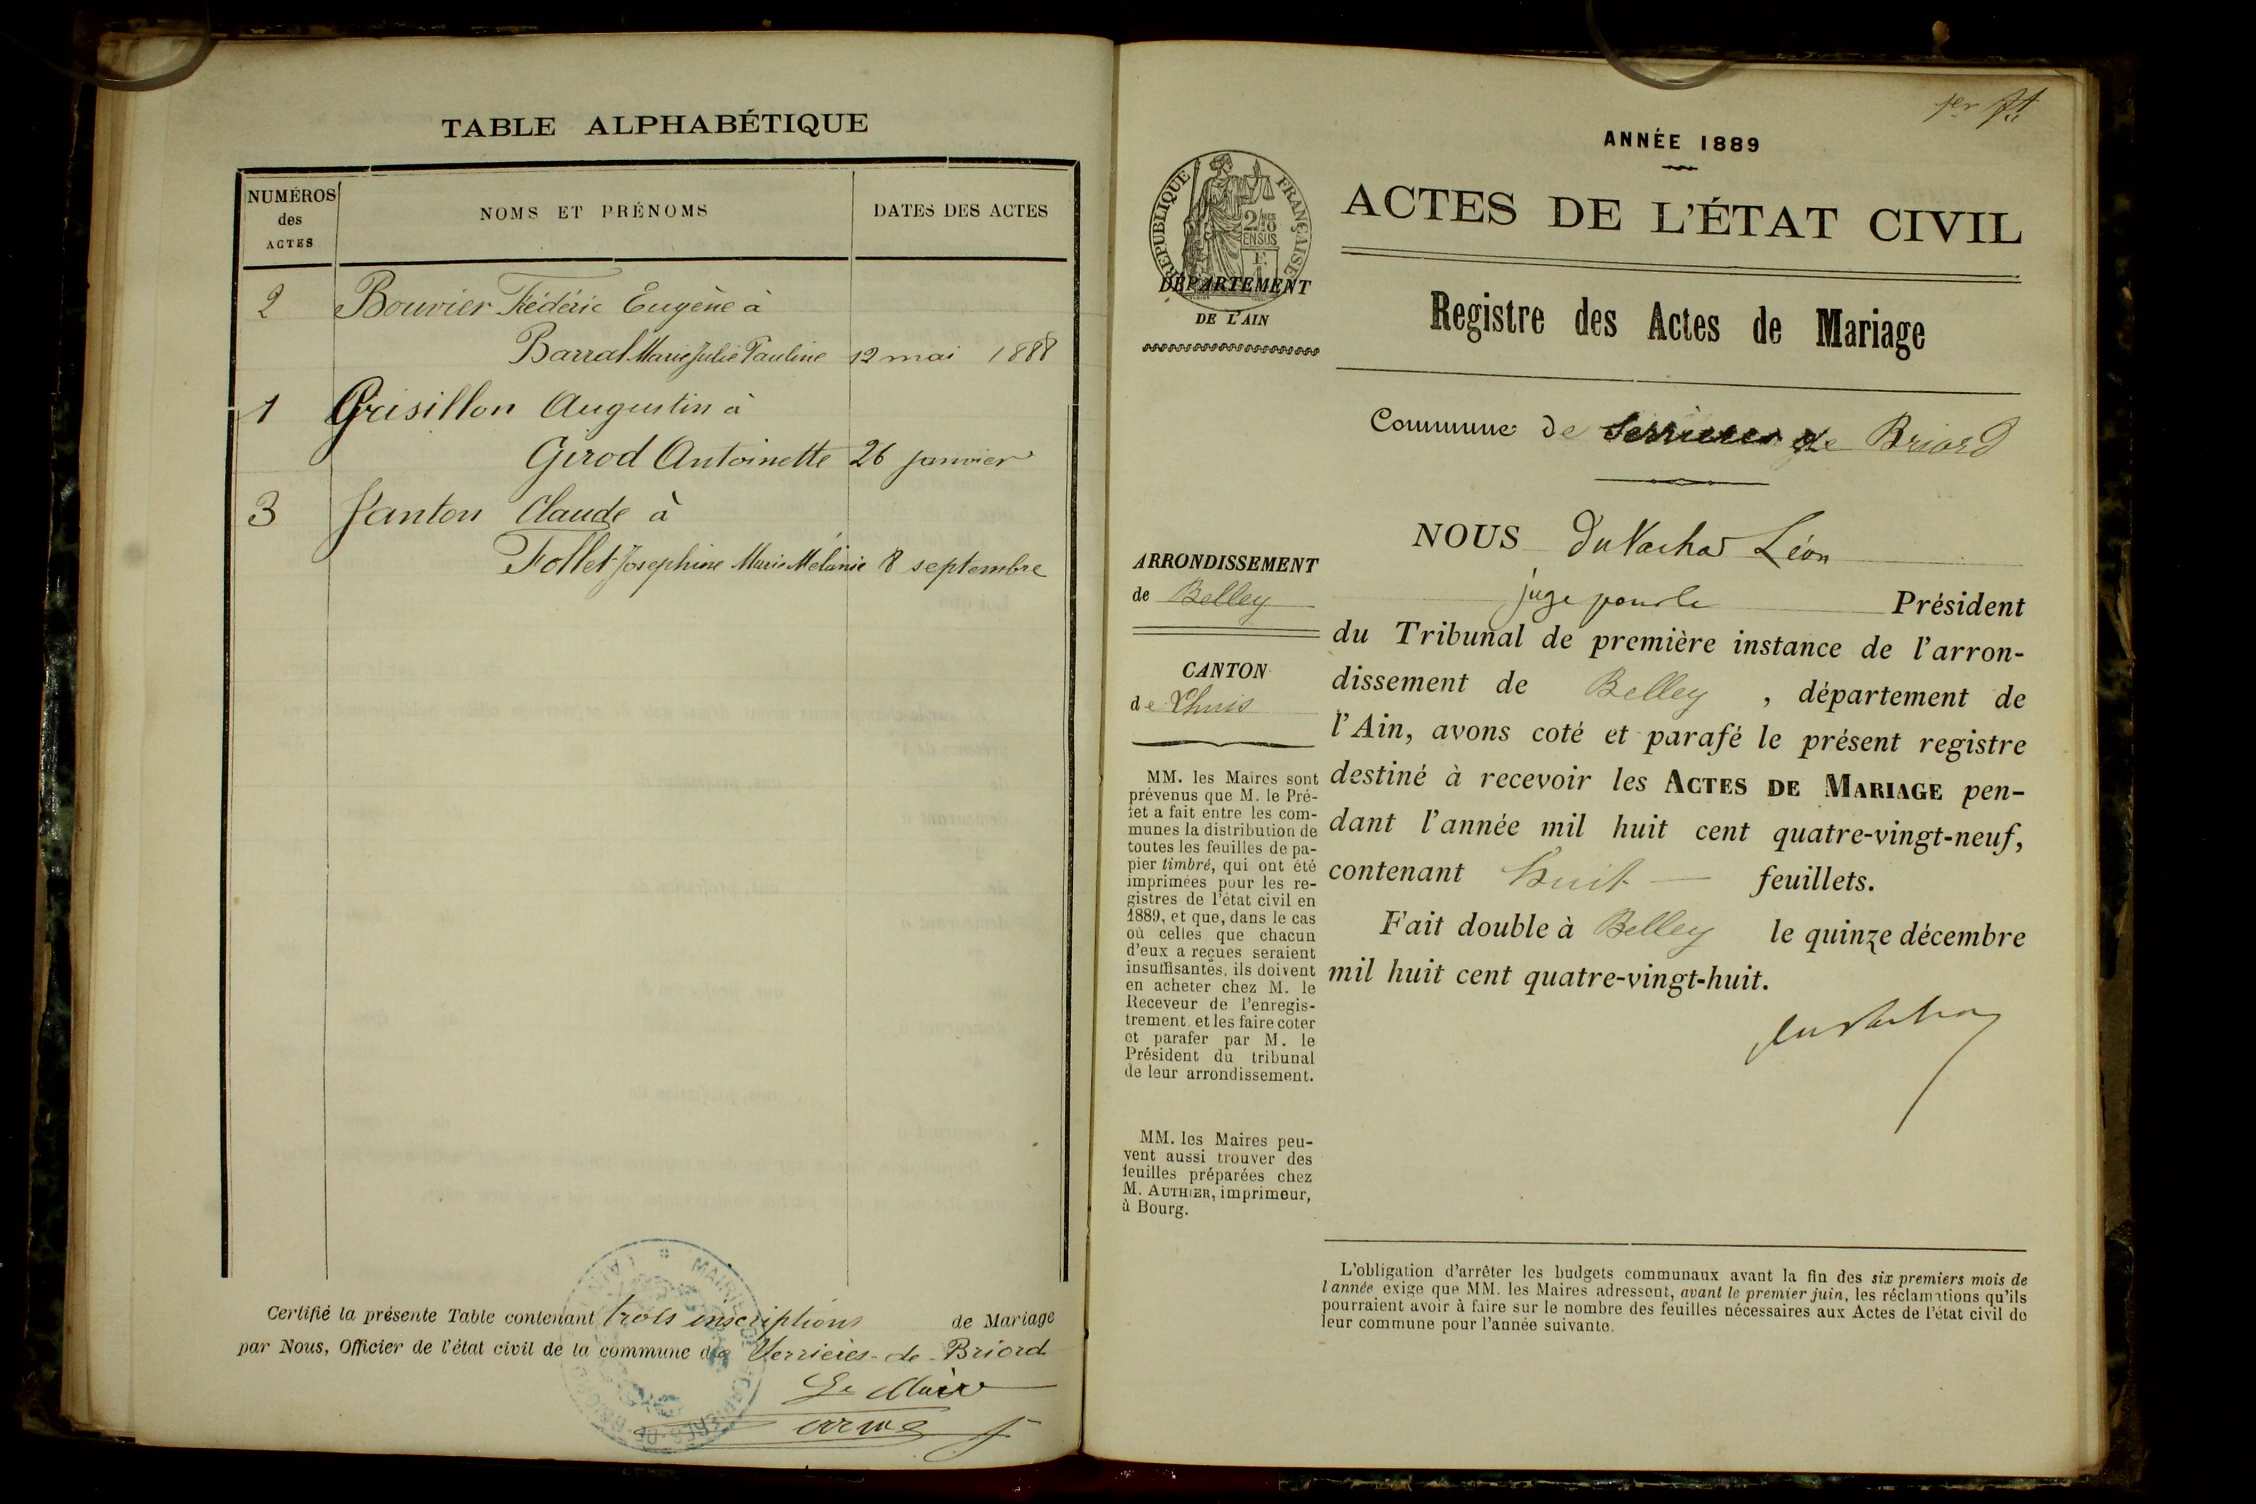 TABLE ALPHABÉTIQUE
NUMÉROS
des
ACTES
NOMS ET PRÉNOMS
DATES DES ACTES
2 Bouvier Frédéric Eugène à
Barral Marie Julie Pauline 12 mai 1888
1 Grisillon Augustin à
Girod Antoinette 26 janvier
3 Janton Claude à
Follet Josephine Marie Mélanie 8 septembre
Certifié la présente Table contenant trois inscriptions de Mariage
par Nous, Officier de l'état civil de la commune de Serrières-de-Briord
Le Maire
1er
ANNÉE 1889
ACTES DE L'ÉTAT CIVIL
RÉPUBLIQUE FRANÇAISE
DÉPARTEMENT
DE L'AIN
Registre des Actes de Mariage
Commune de Serrieres de Briord
NOUS du Vachat Léon
juge pour le Président
du Tribunal de première instance de l'arron-
dissement de Belley, département de
l'Ain, avons coté et parafé le présent registre
destiné à recevoir les ACTES DE MARIAGE pen-
dant l'année mil huit cent quatre-vingt-neuf,
contenant huit feuillets.
Fait double à Belley le quinze décembre
mil huit cent quatre-vingt-huit.
ARRONDISSEMENT
de Belley
CANTON
de Lhuis
MM. les Maires sont
prévenus que M. le Pré-
fet a fait entre les com-
munes la distribution de
toutes les feuilles de pa-
pier timbré, qui ont été
imprimées pour les re-
gistres de l'état civil en
1889, et que, dans le cas
où celles que chacun
d'eux a reçues seraient
insuffisantes, ils doivent
en acheter chez M. le
Receveur de l'enregis-
trement et les faire coter
et parafer par M. le
Président du tribunal
de leur arrondissement.
MM. les Maires peu-
vent aussi trouver des
feuilles préparées chez
M. AUTHIER, imprimeur,
à Bourg.
L'obligation d'arrêter les budgets communaux avant la fin des six premiers mois de
l'année exige que MM. les Maires adressent, avant le premier juin, les réclamations qu'ils
pourraient avoir à faire sur le nombre des feuilles nécessaires aux Actes de l'état civil de
leur commune pour l'année suivante.